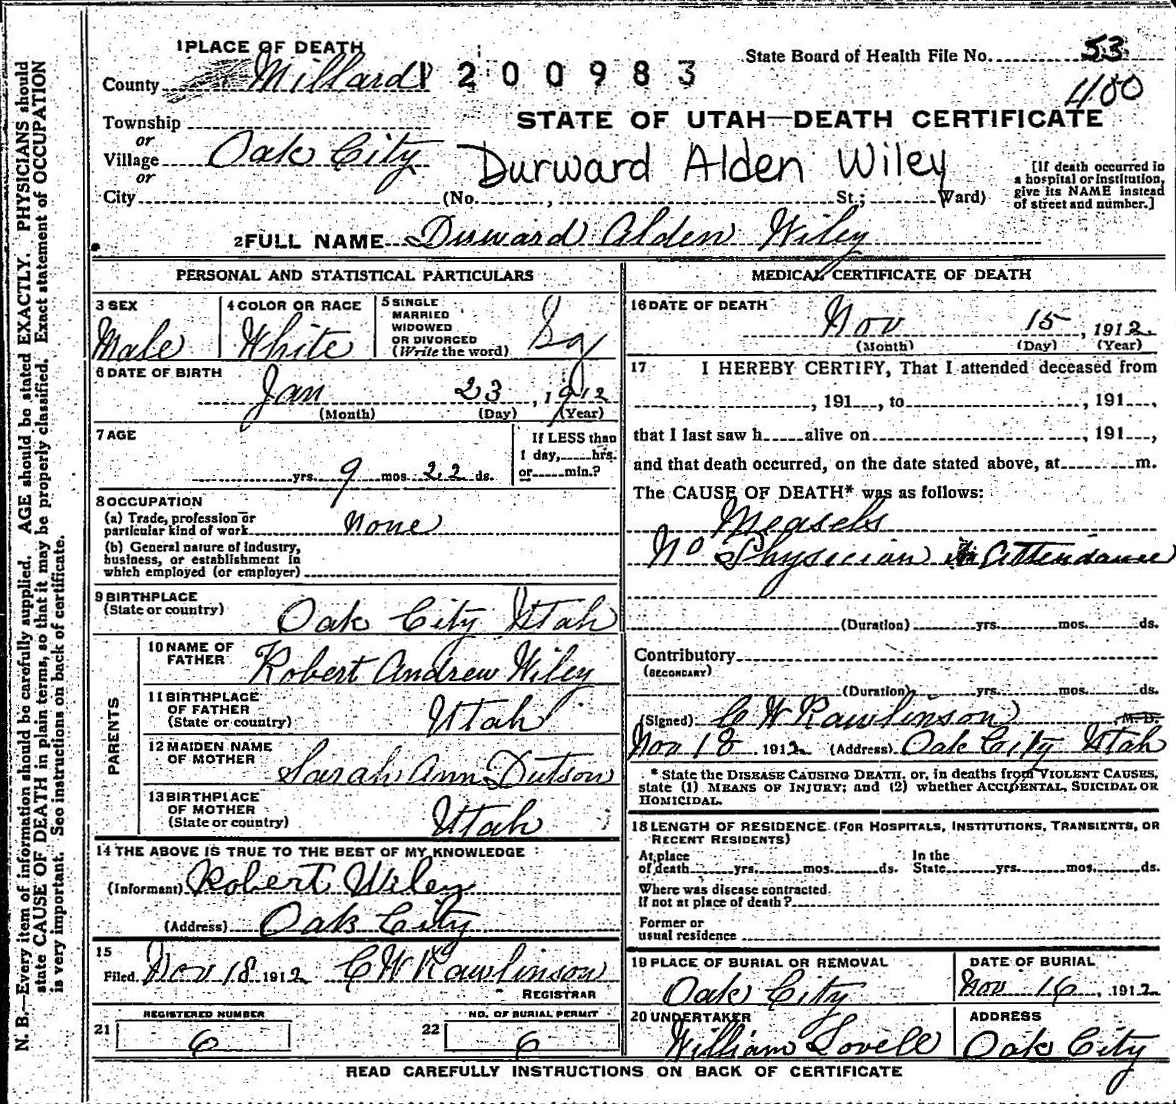 1 PLACE OF DEATH
County Millard 1200983
State Board of Health File No. 53
400
Township
or
Village Oak City
or
City
STATE OF UTAH—DEATH CERTIFICATE
Durward Alden Wiley
(No. , St.; Ward)
[If death occurred in
a hospital or institution,
give its NAME instead
of street and number.]
2 FULL NAME Durward Alden Wiley
PERSONAL AND STATISTICAL PARTICULARS
3 SEX
Male
4 COLOR OR RACE
White
5 SINGLE
MARRIED
WIDOWED
OR DIVORCED
(Write the word) Sg
6 DATE OF BIRTH
Jan 23, 1912
(Month) (Day) (Year)
7 AGE
yrs. 9 mos. 22 ds.
If LESS than
1 day, hrs.
or min.?
8 OCCUPATION
(a) Trade, profession or
particular kind of work None
(b) General nature of industry,
business, or establishment in
which employed (or employer)
9 BIRTHPLACE
(State or country)
Oak City Utah
PARENTS
10 NAME OF
FATHER Robert Andrew Wiley
11 BIRTHPLACE
OF FATHER
(State or country) Utah
12 MAIDEN NAME
OF MOTHER Sarah Ann Dutson
13 BIRTHPLACE
OF MOTHER
(State or country) Utah
14 THE ABOVE IS TRUE TO THE BEST OF MY KNOWLEDGE
(Informant) Robert Wiley
(Address) Oak City
15
Filed Nov 18 1912 C W Rawlinson
REGISTRAR
REGISTERED NUMBER
21 6
NO. OF BURIAL PERMIT
22 6
MEDICAL CERTIFICATE OF DEATH
16 DATE OF DEATH
Nov 15, 1912.
(Month) (Day) (Year)
17 I HEREBY CERTIFY, That I attended deceased from
, 191 , to , 191 ,
that I last saw h alive on , 191 ,
and that death occurred, on the date stated above, at m.
The CAUSE OF DEATH* was as follows:
Measels
No Physician in Attendance
(Duration) yrs. mos. ds.
Contributory
(SECONDARY)
(Duration) yrs. mos. ds.
(Signed) C W Rawlinson M. D.
Nov 18 1912 (Address) Oak City Utah
* State the DISEASE CAUSING DEATH, or, in deaths from VIOLENT CAUSES,
state (1) MEANS OF INJURY; and (2) whether ACCIDENTAL, SUICIDAL OR
HOMICIDAL.
18 LENGTH OF RESIDENCE (FOR HOSPITALS, INSTITUTIONS, TRANSIENTS, OR
RECENT RESIDENTS)
At place
of death yrs. mos. ds.
In the
State yrs. mos. ds.
Where was disease contracted
If not at place of death?
Former or
usual residence
19 PLACE OF BURIAL OR REMOVAL
Oak City
DATE OF BURIAL
Nov 16, 1912
20 UNDERTAKER
William Lovell
ADDRESS
Oak City
READ CAREFULLY INSTRUCTIONS ON BACK OF CERTIFICATE
N. B.—Every item of information should be carefully supplied. AGE should be stated EXACTLY. PHYSICIANS should
state CAUSE OF DEATH in plain terms, so that it may be properly classified. Exact statement of OCCUPATION
is very important. See instructions on back of certificate.